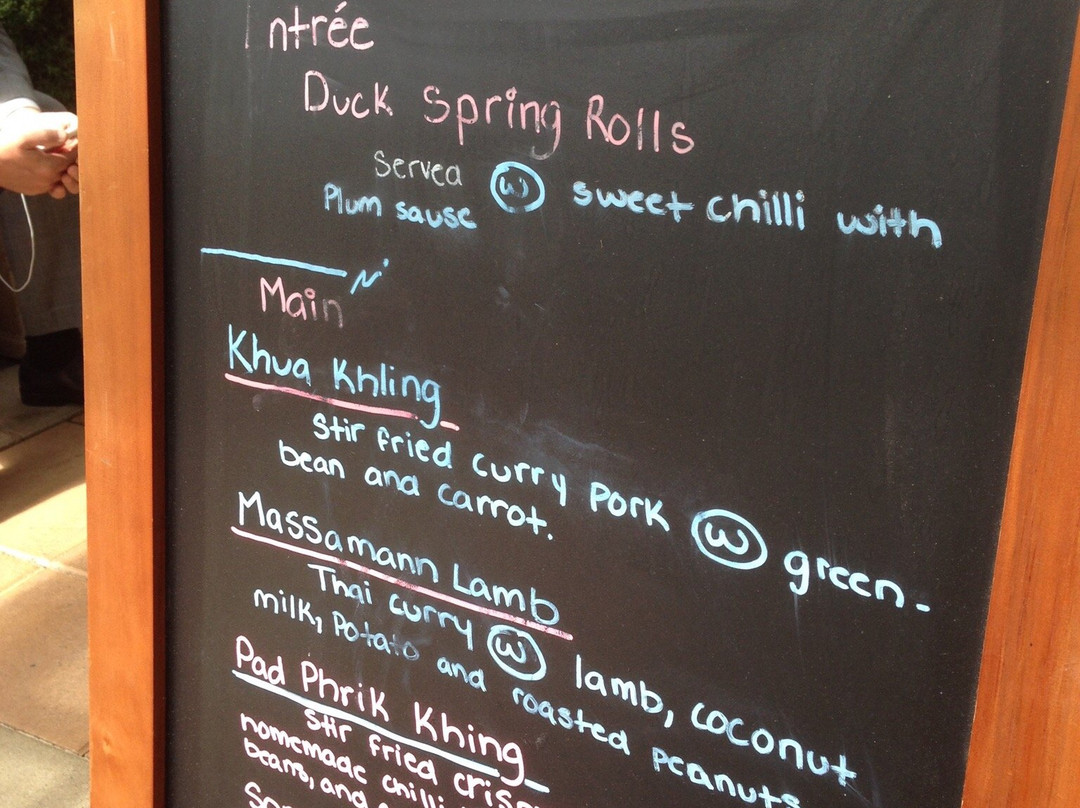 Entrée
Duck Spring Rolls
Served w sweet chilli with
Plum sause
Main
Khua Khling
Stir fried curry pork w green-
bean and carrot.
Massamann Lamb
Thai curry w lamb, coconut
milk, Potato and roasted peanuts
Pad Phrik Khing
Stir fried
homemade chilli
beans, and